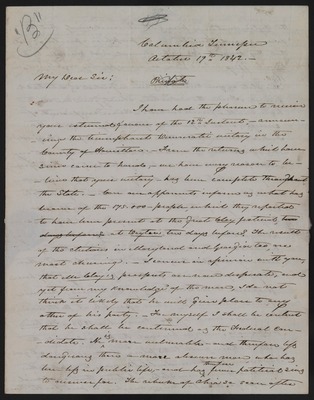 Columbia Tennessee
October 19th 1842.—
My Dear Sir:
Private
I have had the pleasure to receive
your esteemed favour of the 12th Instant,— announ-
cing the triumphant Democratic victory in the
County of Hamilton. From the returns which have
since come to hand, we have every reason to be-
lieve that your victory has been complete throughout
the State.— Can our opponents inform us what has
become of the 175.000 people which they reported
to have been present at the Great Clay festival,
at Dayton two days before? The results
of the elections in Maryland and Georgia too are
most cheering.— I concur in opinion with you,
that Mr Clay's prospects are now desperate, and
yet from my knowledge of the man, I do not
think it likely that he will give place to any
other of his party.— For myself I shall be content
that he shall be continued as the Federal can-
didate. He is more vulnerable and therefore less
dangerous than a more obscure man who has
been less in public life, and has fewer political sins
to answer for. The return of Ohio so soon after